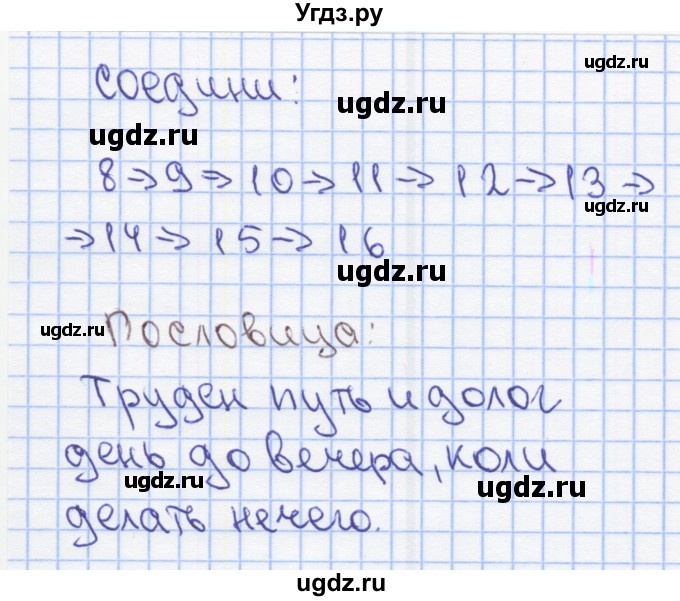 Угдз.ру
ugdz.ru
соедини:
ugdz.ru
ugdz.ru
8→9→10→11→12→13→
ugdz.ru
→14→15→16
ugdz.ru
ugdz.ru
Пословица:
Труден путь и долог
день до вечера, коли
ugdz.ru
ugdz.ru
делать нечего.
ugdz.ru